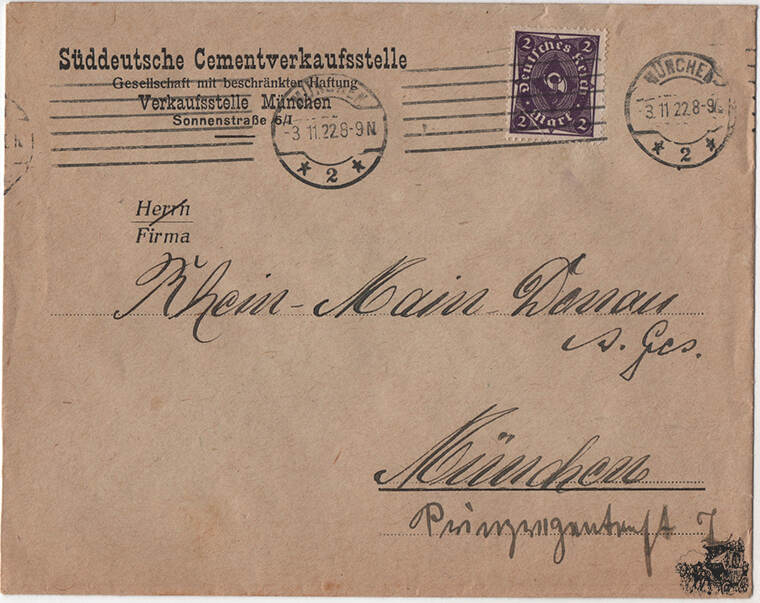 Süddeutsche Cementverkaufsstelle
Gesellschaft mit beschränkter Haftung
Verkaufsstelle München
Sonnenstraße 6/I
MÜNCHEN
-3.11.22.8-9N
* 2 *
2 2
Deutsches Reich
Mark
2 2
MÜNCHEN
-3.11.22.8-9
* 2 *
Herrn
Firma
Rhein-Main-Donau
Ges.
München